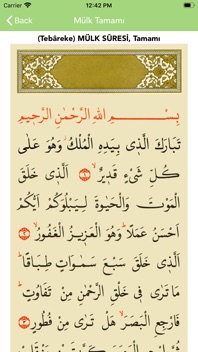 Carrier 12:42 PM
Back Mülk Tamamı
(Tebâreke) MÜLK SÛRESİ, Tamamı
بِسْمِ اللهِ الرَّحْمٰنِ الرَّحِيمِ
تَبَارَكَ الَّذٖى بِيَدِهِ الْمُلْكُ وَهُوَ عَلٰى
كُلِّ شَیْءٍ قَدٖيرٌ ﴿١﴾ اَلَّذٖى خَلَقَ
الْمَوْتَ وَالْحَيٰوةَ لِيَبْلُوَكُمْ اَيُّكُمْ
اَحْسَنُ عَمَلًا وَهُوَ الْعَزٖيزُ الْغَفُورُ ﴿٢﴾
اَلَّذٖى خَلَقَ سَبْعَ سَمٰوَاتٍ طِبَاقًا
مَا تَرٰى فٖى خَلْقِ الرَّحْمٰنِ مِنْ تَفَاوُتٍ
فَارْجِعِ الْبَصَرَ هَلْ تَرٰى مِنْ فُطُورٍ ﴿٣﴾